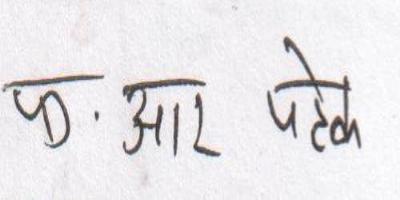 फ. आर पटेल